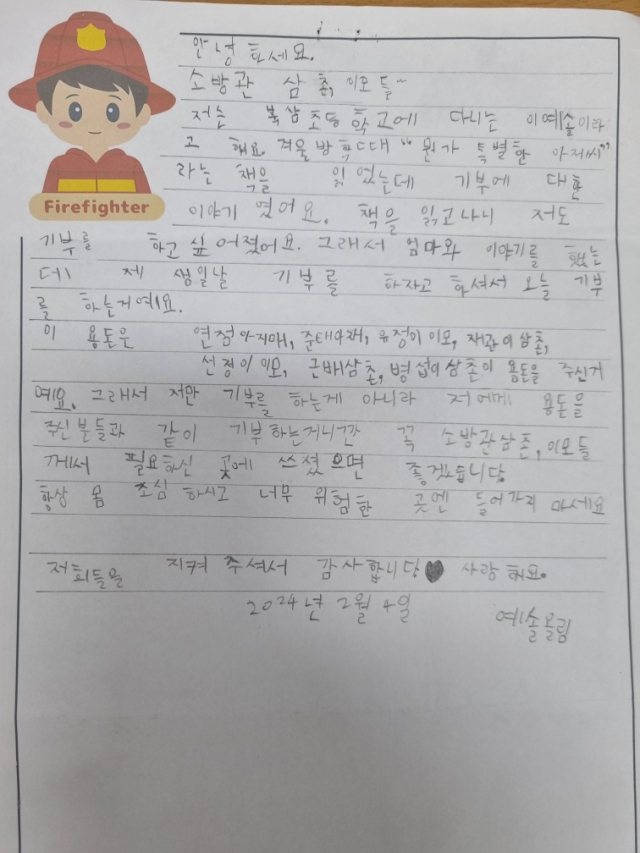 안녕하세요.
소방관 삼촌, 이모들~
저는 북삼초등학교에 다니는 이예솔이라
고 해요. 겨울방학때 "뭔가 특별한 아저씨"
라는 책을 읽었는데 기부에 대한
Firefighter
이야기 였어요. 책을 읽고나니 저도
기부를 하고 싶어졌어요. 그래서 엄마와 이야기를 했는
데 제 생일날 기부를 하자고 하셔서 오늘 기부
를 하는거예요.
이 용돈은 연점아지매, 준태아재, 유정이 이모, 재관이삼촌,
선정이 이모, 근배삼촌, 병섭이삼촌이 용돈을 주신거
예요. 그래서 저만 기부를 하는게 아니라 저에게 용돈을
주신분들과 같이 기부하는거니깐 꼭 소방관삼촌, 이모들
께서 필요하신 곳에 쓰셨으면 좋겠습니다.
항상 몸 조심하시고 너무 위험한 곳엔 들어가지 마세요
저희들을 지켜주셔서 감사합니다♥ 사랑해요.
2024년 2월 4일 예솔올림